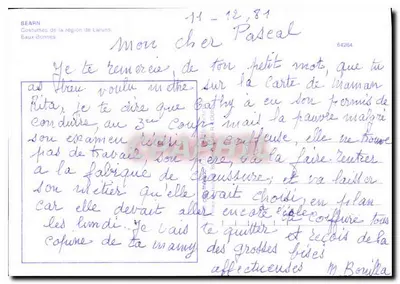 BEARN
Costumes de la région de Laruns
Eaux-Bonnes
11-12,81
Mon cher Pascal
Je te remercie de ton petit mot, que tu
as bien voulu mettre sur la carte de Maman
Rita, je te dire que Cathy à eu son permis de
conduire, au 3me coup mais la pauvre malgré
son examen de coiffeuse, elle ne trouve
pas de travail son père, va la faire rentrer
à la fabrique de chaussure, et va laisser
son métier qu'elle avait choisi, en plan
car elle devait aller encore coiffure tous
les lundi. Je vais te quitter et reçois de la
copine de ta mamy des grosses bises
affectueuses M. Bonilla